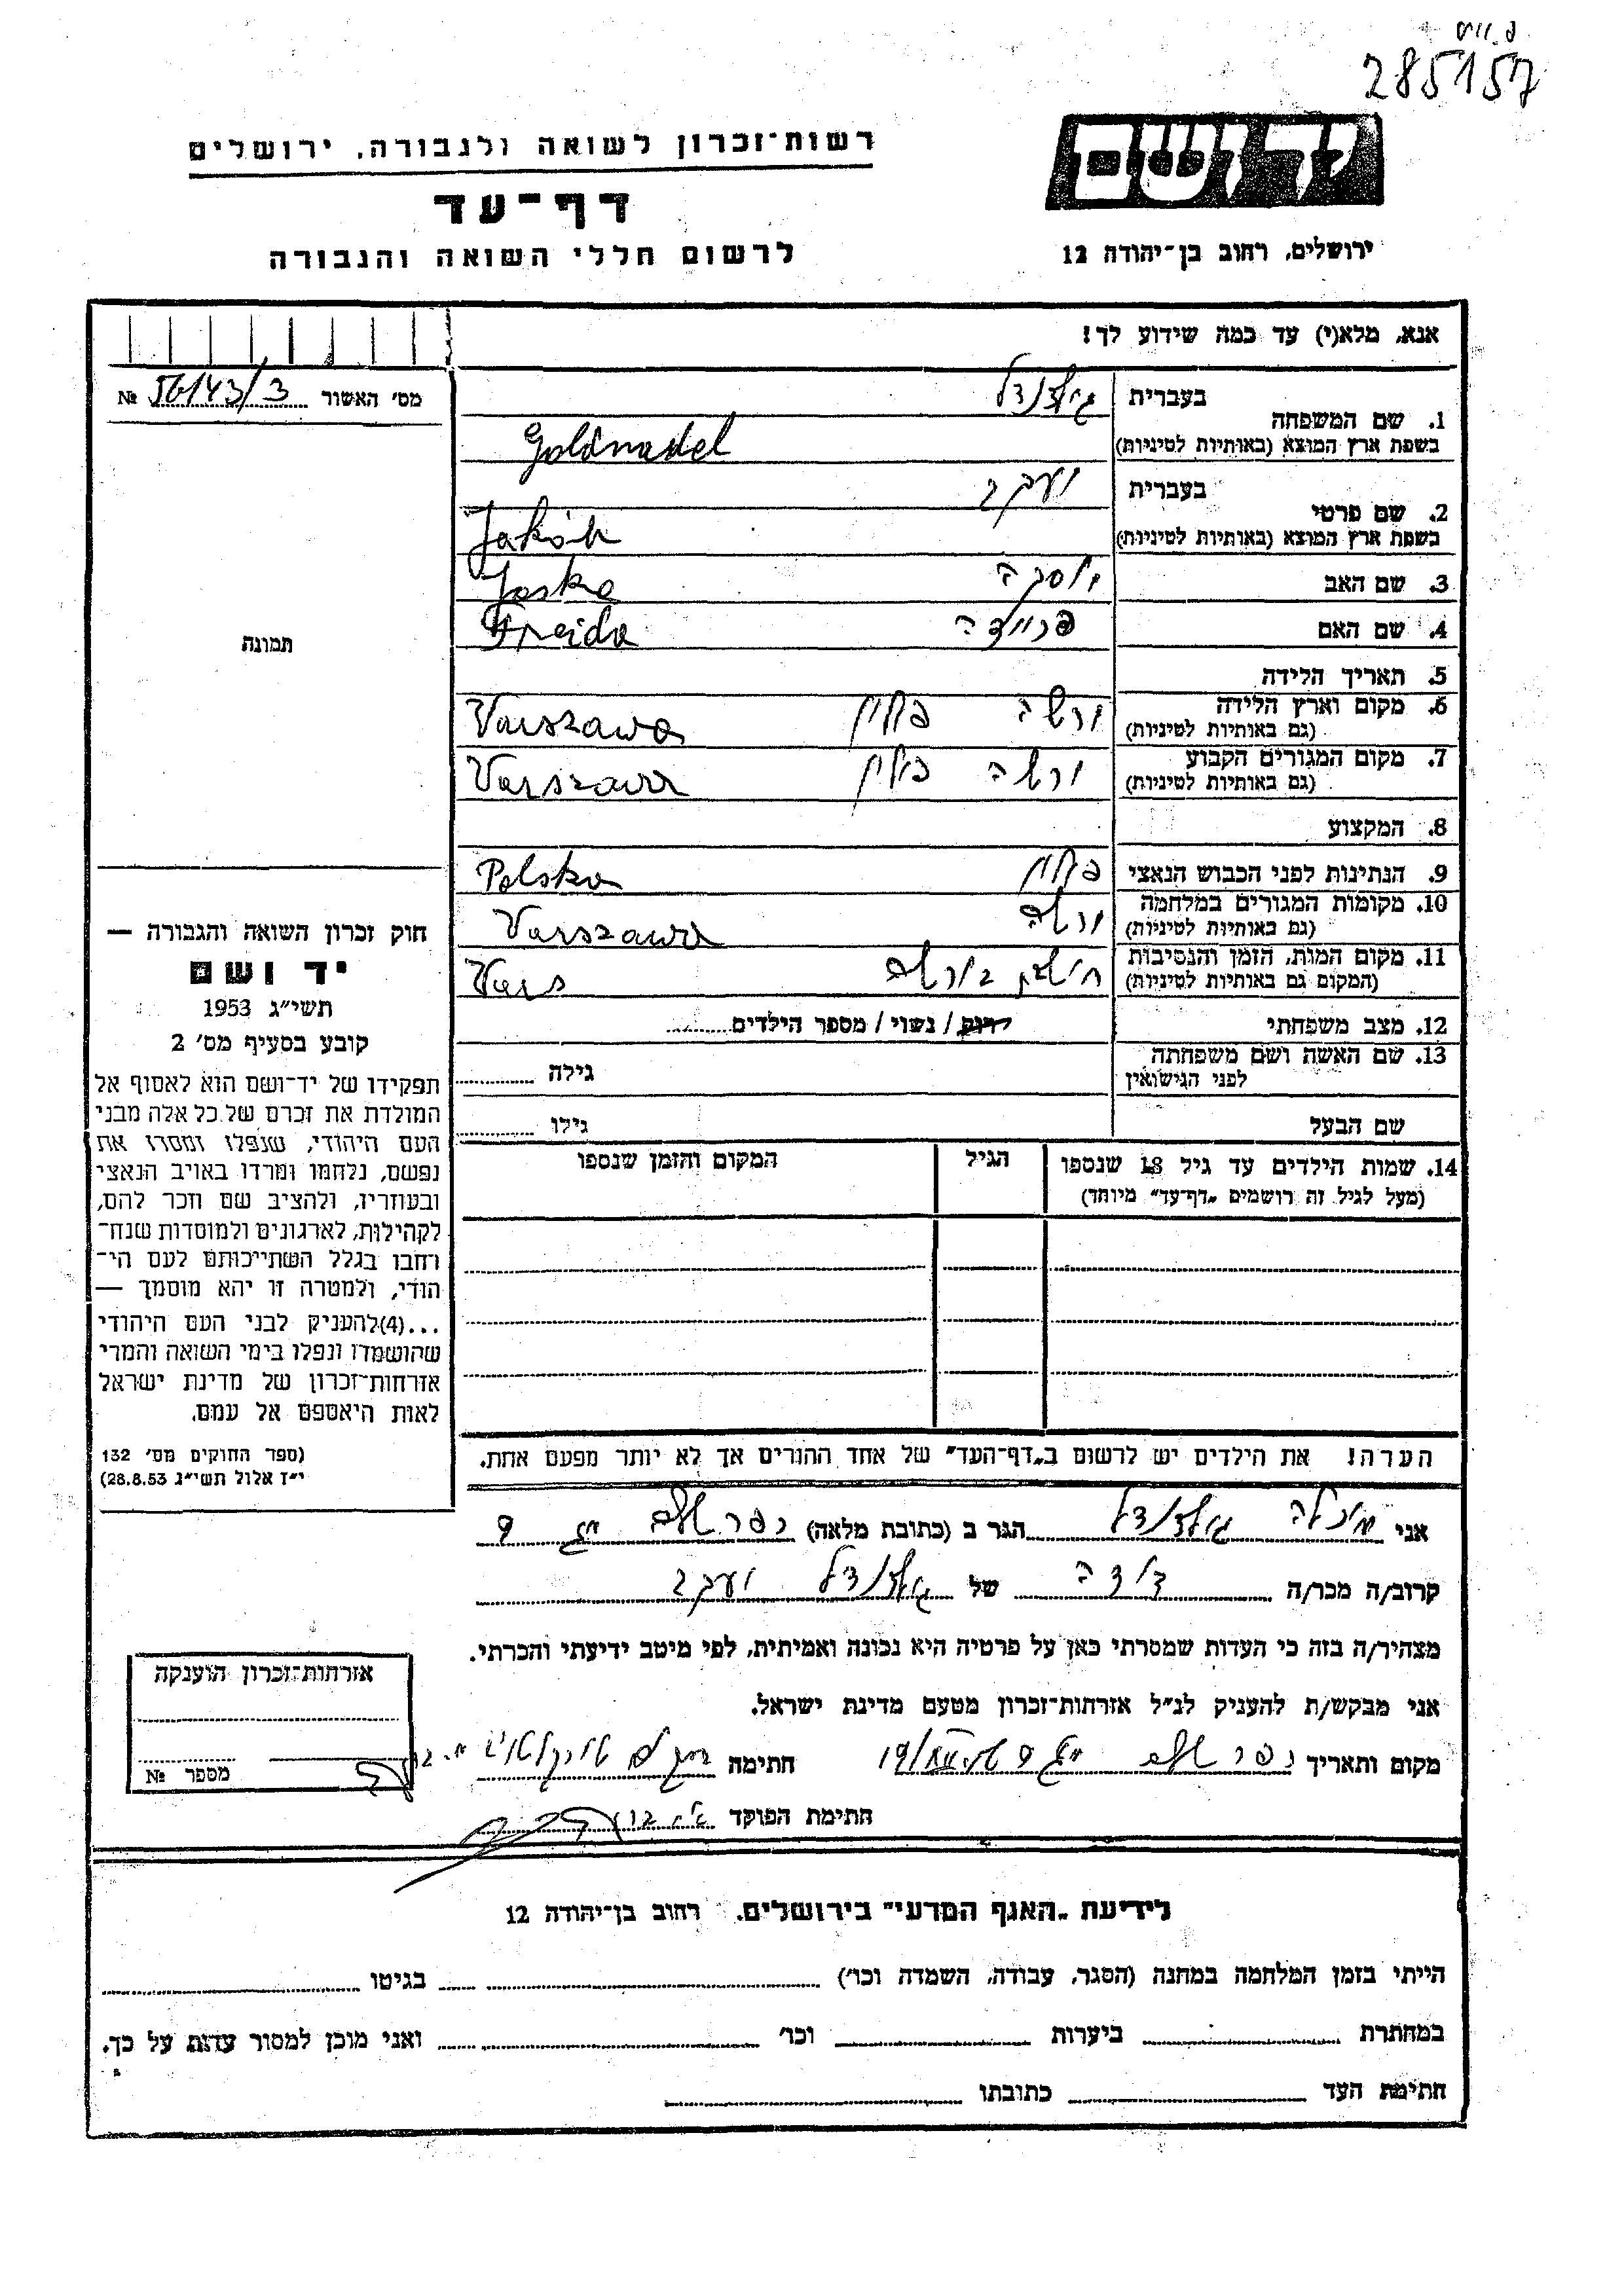 285157
רשות־זכרון לשואה ולגבורה, ירושלים
יד ושם
דף־עד
לרשום חללי השואה והגבורה
ירושלים, רחוב בן־יהודה 12
אנא, מלא(י) עד כמה שידוע לך!
מס' האשור 56143/3 №
תמונה
1. שם המשפחה
בעברית גולדנדל
בשפת ארץ המוצא (באותיות לטיניות) Goldnadel
2. שם פרטי
בעברית יעקב
בשפת ארץ המוצא (באותיות לטיניות) Jakób
3. שם האב יוסקה Joske
4. שם האם פריידה Freida
5. תאריך הלידה
6. מקום וארץ הלידה ורשה פולין Varszawa
(גם באותיות לטיניות)
7. מקום המגורים הקבוע ורשה פולין Varszawa
(גם באותיות לטיניות)
8. המקצוע
9. הנתינות לפני הכבוש הנאצי פולין Polska
10. מקומות המגורים במלחמה ורשה Varszawa
(גם באותיות לטיניות)
11. מקום המות, הזמן והנסיבות בורשה Vars
(המקום גם באותיות לטיניות)
12. מצב משפחתי רווק / נשוי / מספר הילדים
13. שם האשה ושם משפחתה
לפני הנישואין גילה
שם הבעל גילו
14. שמות הילדים עד גיל 18 שנספו הגיל המקום והזמן שנספו
(מעל לגיל זה רושמים „דף־עד" מיוחד)
הערה! את הילדים יש לרשום ב„דף־העד" של אחד ההורים אך לא יותר מפעם אחת.
חוק זכרון השואה והגבורה —
יד ושם
תשי״ג 1953
קובע בסעיף מס' 2
תפקידו של יד־ושם הוא לאסוף אל
המולדת את זכרם של כל אלה מבני
העם היהודי, שנפלו ומסרו את
נפשם, נלחמו ומרדו באויב הנאצי
ובעוזריו, ולהציב שם וזכר להם,
לקהילות, לארגונים ולמוסדות שנח־
רבו בגלל השתייכותם לעם הי־
הודי, ולמטרה זו יהא מוסמך —
...(4)להעניק לבני העם היהודי
שהושמדו ונפלו בימי השואה והמרי
אזרחות־זכרון של מדינת ישראל
לאות היאספם אל עמם.
(ספר החוקים מס' 132
י״ז אלול תשי״ג 28.8.53)
אני גולדנדל הגר ב (כתובת מלאה) כפר שלם
קרוב/ה מכר/ה דודה של גולדנדל יעקב
מצהיר/ה בזה כי העדות שמסרתי כאן על פרטיה היא נכונה ואמיתית, לפי מיטב ידיעתי והכרתי.
אני מבקש/ת להעניק לנ״ל אזרחות־זכרון מטעם מדינת ישראל.
מקום ותאריך כפר שלם חתימה
חתימת הפוקד
אזרחות־זכרון הוענקה
מספר №
לידיעת „האגף המדעי" בירושלים, רחוב בן־יהודה 12
הייתי בזמן המלחמה במחנה (הסגר, עבודה, השמדה וכו') בגיטו
במחתרת ביערות וכו' ואני מוכן למסור עדות על כך.
חתימת העד כתובתו